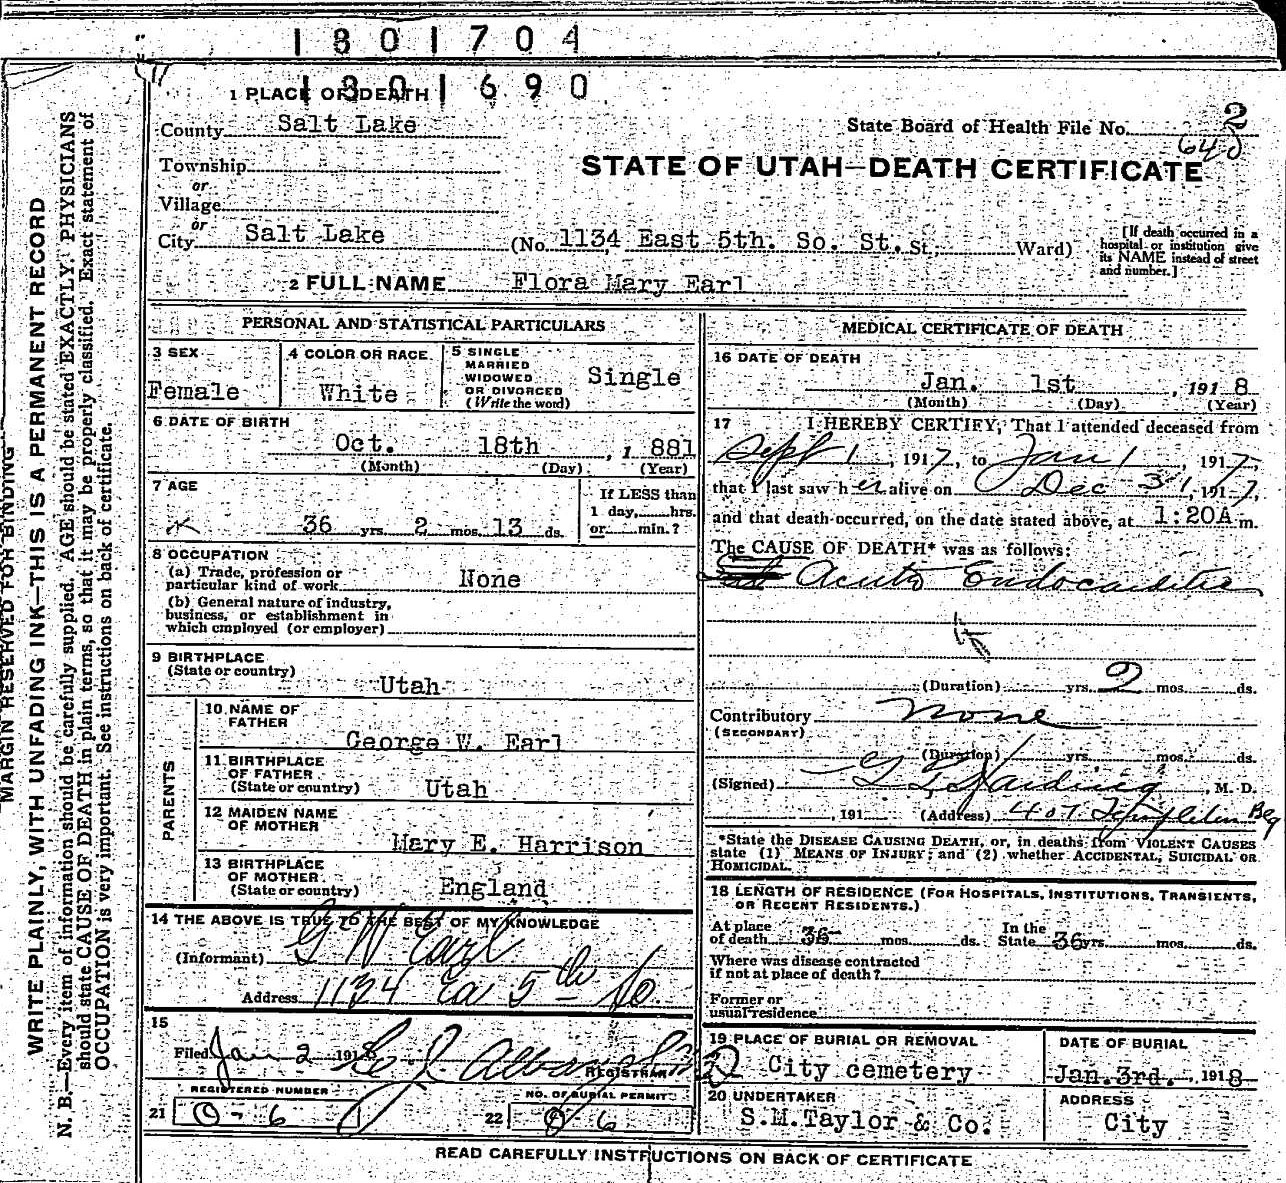 1801704
1801690
1 PLACE OF DEATH
County Salt Lake
State Board of Health File No. 2
Township
STATE OF UTAH—DEATH CERTIFICATE
or
Village
or
City Salt Lake (No. 1134 East 5th. So. St. St. Ward)
[If death occurred in a
hospital or institution give
its NAME instead of street
and number.]
2 FULL NAME Flora Mary Earl
PERSONAL AND STATISTICAL PARTICULARS
3 SEX
Female
4 COLOR OR RACE
White
5 SINGLE
MARRIED
WIDOWED
OR DIVORCED
(Write the word)
Single
6 DATE OF BIRTH
Oct. 18th , 1 881
(Month) (Day) (Year)
7 AGE
36 yrs. 2 mos. 13 ds.
If LESS than
1 day, hrs.
or min.?
8 OCCUPATION
(a) Trade, profession or
particular kind of work None
(b) General nature of industry,
business, or establishment in
which employed (or employer)
9 BIRTHPLACE
(State or country)
Utah
PARENTS
10 NAME OF
FATHER
George W. Earl
11 BIRTHPLACE
OF FATHER
(State or country) Utah
12 MAIDEN NAME
OF MOTHER
Mary E. Harrison
13 BIRTHPLACE
OF MOTHER
(State or country) England
14 THE ABOVE IS TRUE TO THE BEST OF MY KNOWLEDGE
(Informant) G W Earl
Address 1134 Ea 5th So
15
Filed Jan 2 191
REGISTRAR
REGISTERED NUMBER
21 0-6
NO. OF BURIAL PERMIT
22 0 6
MEDICAL CERTIFICATE OF DEATH
16 DATE OF DEATH
Jan. 1st , 191 8
(Month) (Day) (Year)
17 I HEREBY CERTIFY, That I attended deceased from
Sept 1 , 1917, to Jan 1 , 1917,
that I last saw her alive on Dec 31, 1917,
and that death occurred, on the date stated above, at 1:20A m.
The CAUSE OF DEATH* was as follows:
Acute Endocarditis
(Duration) yrs. 2 mos. ds.
Contributory None
(SECONDARY)
(Duration) yrs. mos. ds.
(Signed) Harding , M. D.
, 191 (Address) 407 Templeton Blg
*State the DISEASE CAUSING DEATH, or, in deaths from VIOLENT CAUSES
state (1) MEANS OF INJURY; and (2) whether ACCIDENTAL, SUICIDAL OR
HOMICIDAL.
18 LENGTH OF RESIDENCE (FOR HOSPITALS, INSTITUTIONS, TRANSIENTS,
OR RECENT RESIDENTS.)
At place
of death 36 mos. ds.
In the
State 36 yrs. mos. ds.
Where was disease contracted
if not at place of death?
Former or
usual residence
19 PLACE OF BURIAL OR REMOVAL
City cemetery
DATE OF BURIAL
Jan. 3rd. , 191 8
20 UNDERTAKER
S.M.Taylor & Co.
ADDRESS
City
READ CAREFULLY INSTRUCTIONS ON BACK OF CERTIFICATE
MARGIN RESERVED FOR BINDING
WRITE PLAINLY, WITH UNFADING INK—THIS IS A PERMANENT RECORD
N. B.—Every item of information should be carefully supplied. AGE should be stated EXACTLY. PHYSICIANS
should state CAUSE OF DEATH in plain terms, so that it may be properly classified. Exact statement of
OCCUPATION is very important. See instructions on back of certificate.